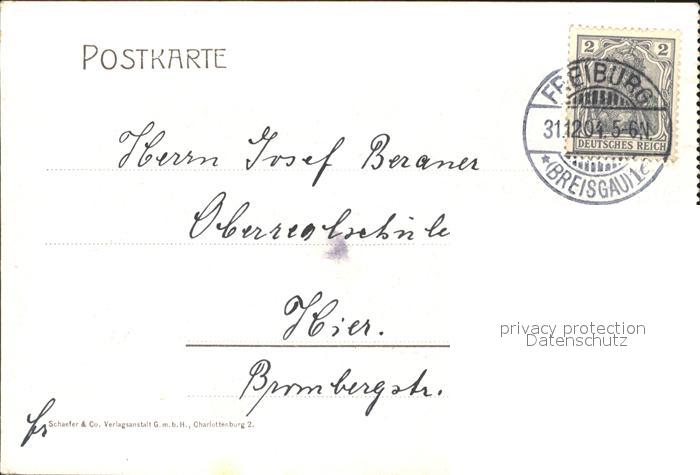 POSTKARTE
2 2
DEUTSCHES REICH
FREIBURG
31.12.04. 5-6N.
* (BREISGAU) 1c
Herrn Josef Beraner
Oberrealschule
Hier.
Brombergstr.
privacy protection
Datenschutz
fr
Schaefer & Co. Verlagsanstalt G.m.b.H., Charlottenburg 2.